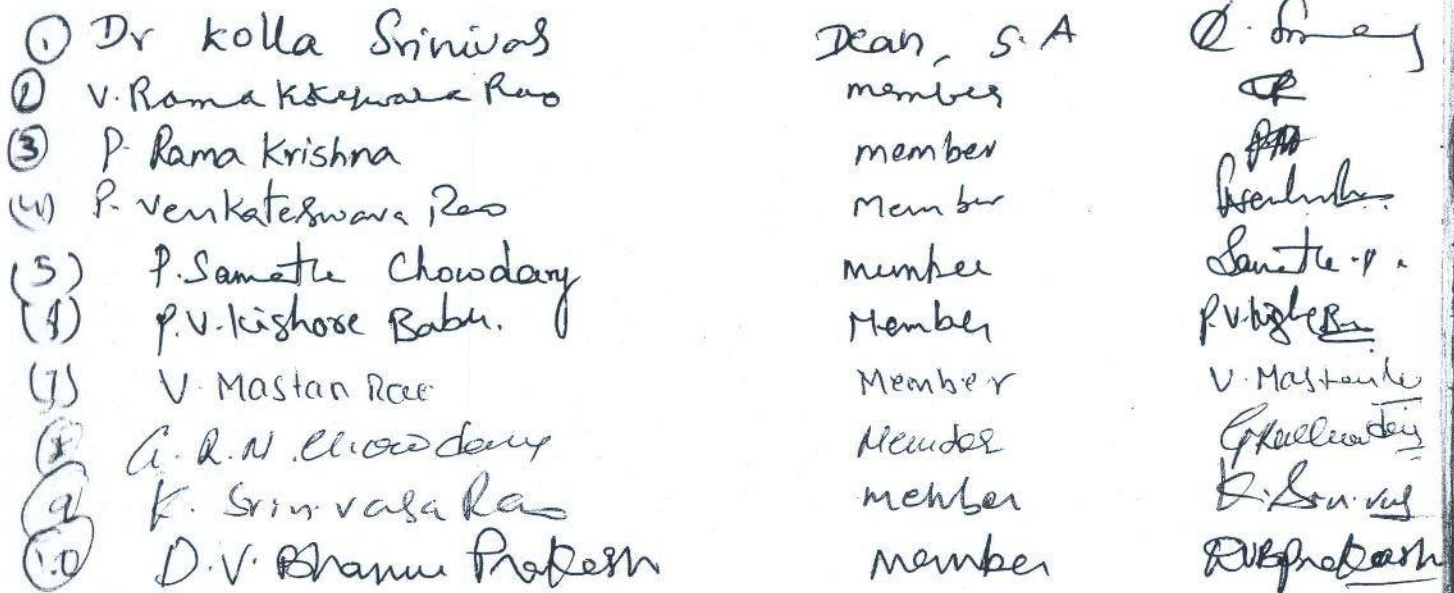 ① Dr Kolla Srinivas Dean, S.A K. Srinivas
② V. Rama Koteswara Rao member
③ P. Rama Krishna member
(4) P. Venkateswara Rao Member
(5) P. Samatha Chowdary member Samatha.P.
(6) P.V. Kishore Babu. Member P.V. Kishore Bu
(7) V. Mastan Rao Member V. Mastan
(8) G.R.N. Chowdary Member
(9) K. Srinivasa Rao member K. Srinivas
(10) D.V. Bhanu Prakash member DVBPrakash